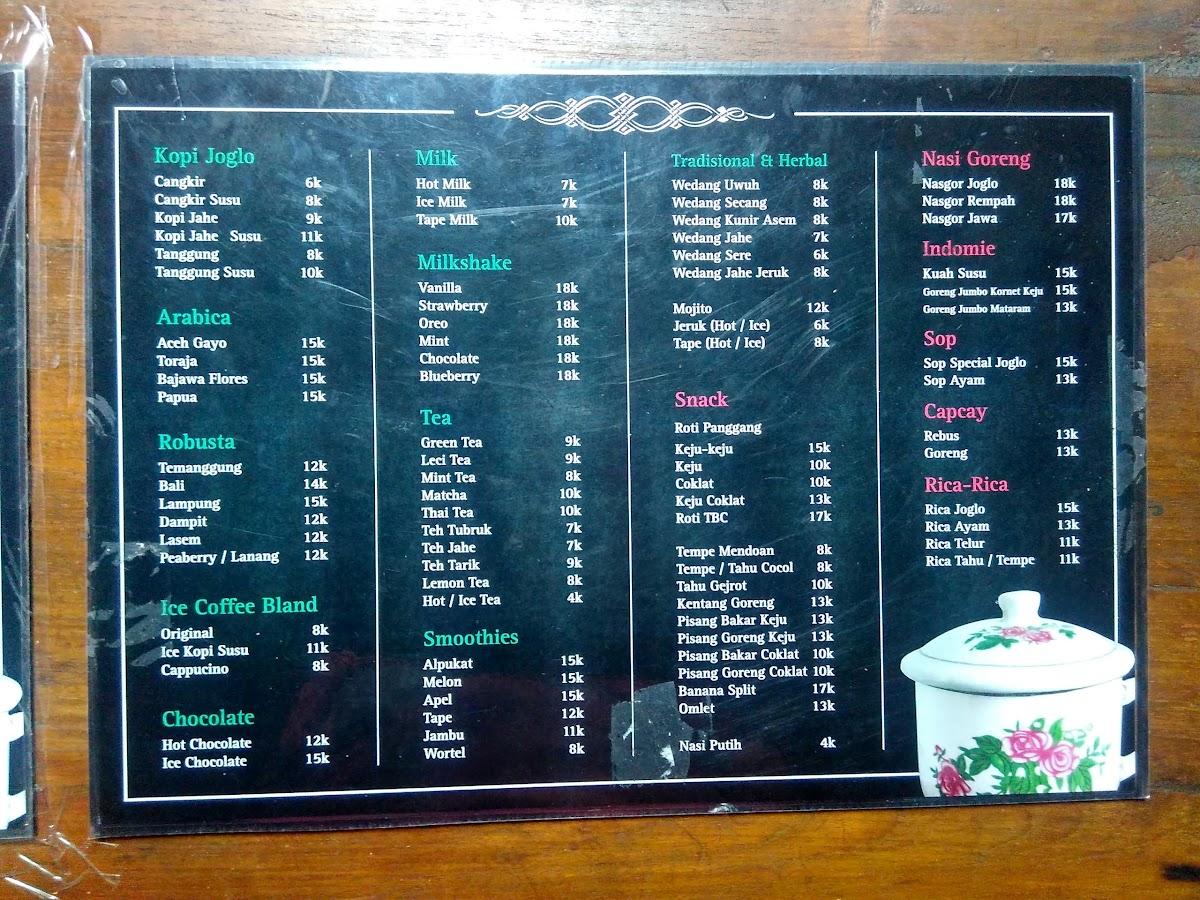 Kopi Joglo
Cangkir 6k
Cangkir Susu 8k
Kopi Jahe 9k
Kopi Jahe Susu 11k
Tanggung 8k
Tanggung Susu 10k
Arabica
Aceh Gayo 15k
Toraja 15k
Bajawa Flores 15k
Papua 15k
Robusta
Temanggung 12k
Bali 14k
Lampung 15k
Dampit 12k
Lasem 12k
Peaberry / Lanang 12k
Ice Coffee Bland
Original 8k
Ice Kopi Susu 11k
Cappucino 8k
Chocolate
Hot Chocolate 12k
Ice Chocolate 15k
Milk
Hot Milk 7k
Ice Milk 7k
Tape Milk 10k
Milkshake
Vanilla 18k
Strawberry 18k
Oreo 18k
Mint 18k
Chocolate 18k
Blueberry 18k
Tea
Green Tea 9k
Leci Tea 9k
Mint Tea 8k
Matcha 10k
Thai Tea 10k
Teh Tubruk 7k
Teh Jahe 7k
Teh Tarik 9k
Lemon Tea 8k
Hot / Ice Tea 4k
Smoothies
Alpukat 15k
Melon 15k
Apel 15k
Tape 12k
Jambu 11k
Wortel 8k
Tradisional & Herbal
Wedang Uwuh 8k
Wedang Secang 8k
Wedang Kunir Asem 8k
Wedang Jahe 7k
Wedang Sere 6k
Wedang Jahe Jeruk 8k
Mojito 12k
Jeruk (Hot / Ice) 6k
Tape (Hot / Ice) 8k
Snack
Roti Panggang
Keju-keju 15k
Keju 10k
Coklat 10k
Keju Coklat 13k
Roti TBC 17k
Tempe Mendoan 8k
Tempe / Tahu Cocol 8k
Tahu Gejrot 10k
Kentang Goreng 13k
Pisang Bakar Keju 13k
Pisang Goreng Keju 13k
Pisang Bakar Coklat 10k
Pisang Goreng Coklat 10k
Banana Split 17k
Omlet 13k
Nasi Putih 4k
Nasi Goreng
Nasgor Joglo 18k
Nasgor Rempah 18k
Nasgor Jawa 17k
Indomie
Kuah Susu 15k
Goreng Jumbo Kornet Keju 15k
Goreng Jumbo Mataram 13k
Sop
Sop Special Joglo 15k
Sop Ayam 13k
Capcay
Rebus 13k
Goreng 13k
Rica-Rica
Rica Joglo 15k
Rica Ayam 13k
Rica Telur 11k
Rica Tahu / Tempe 11k